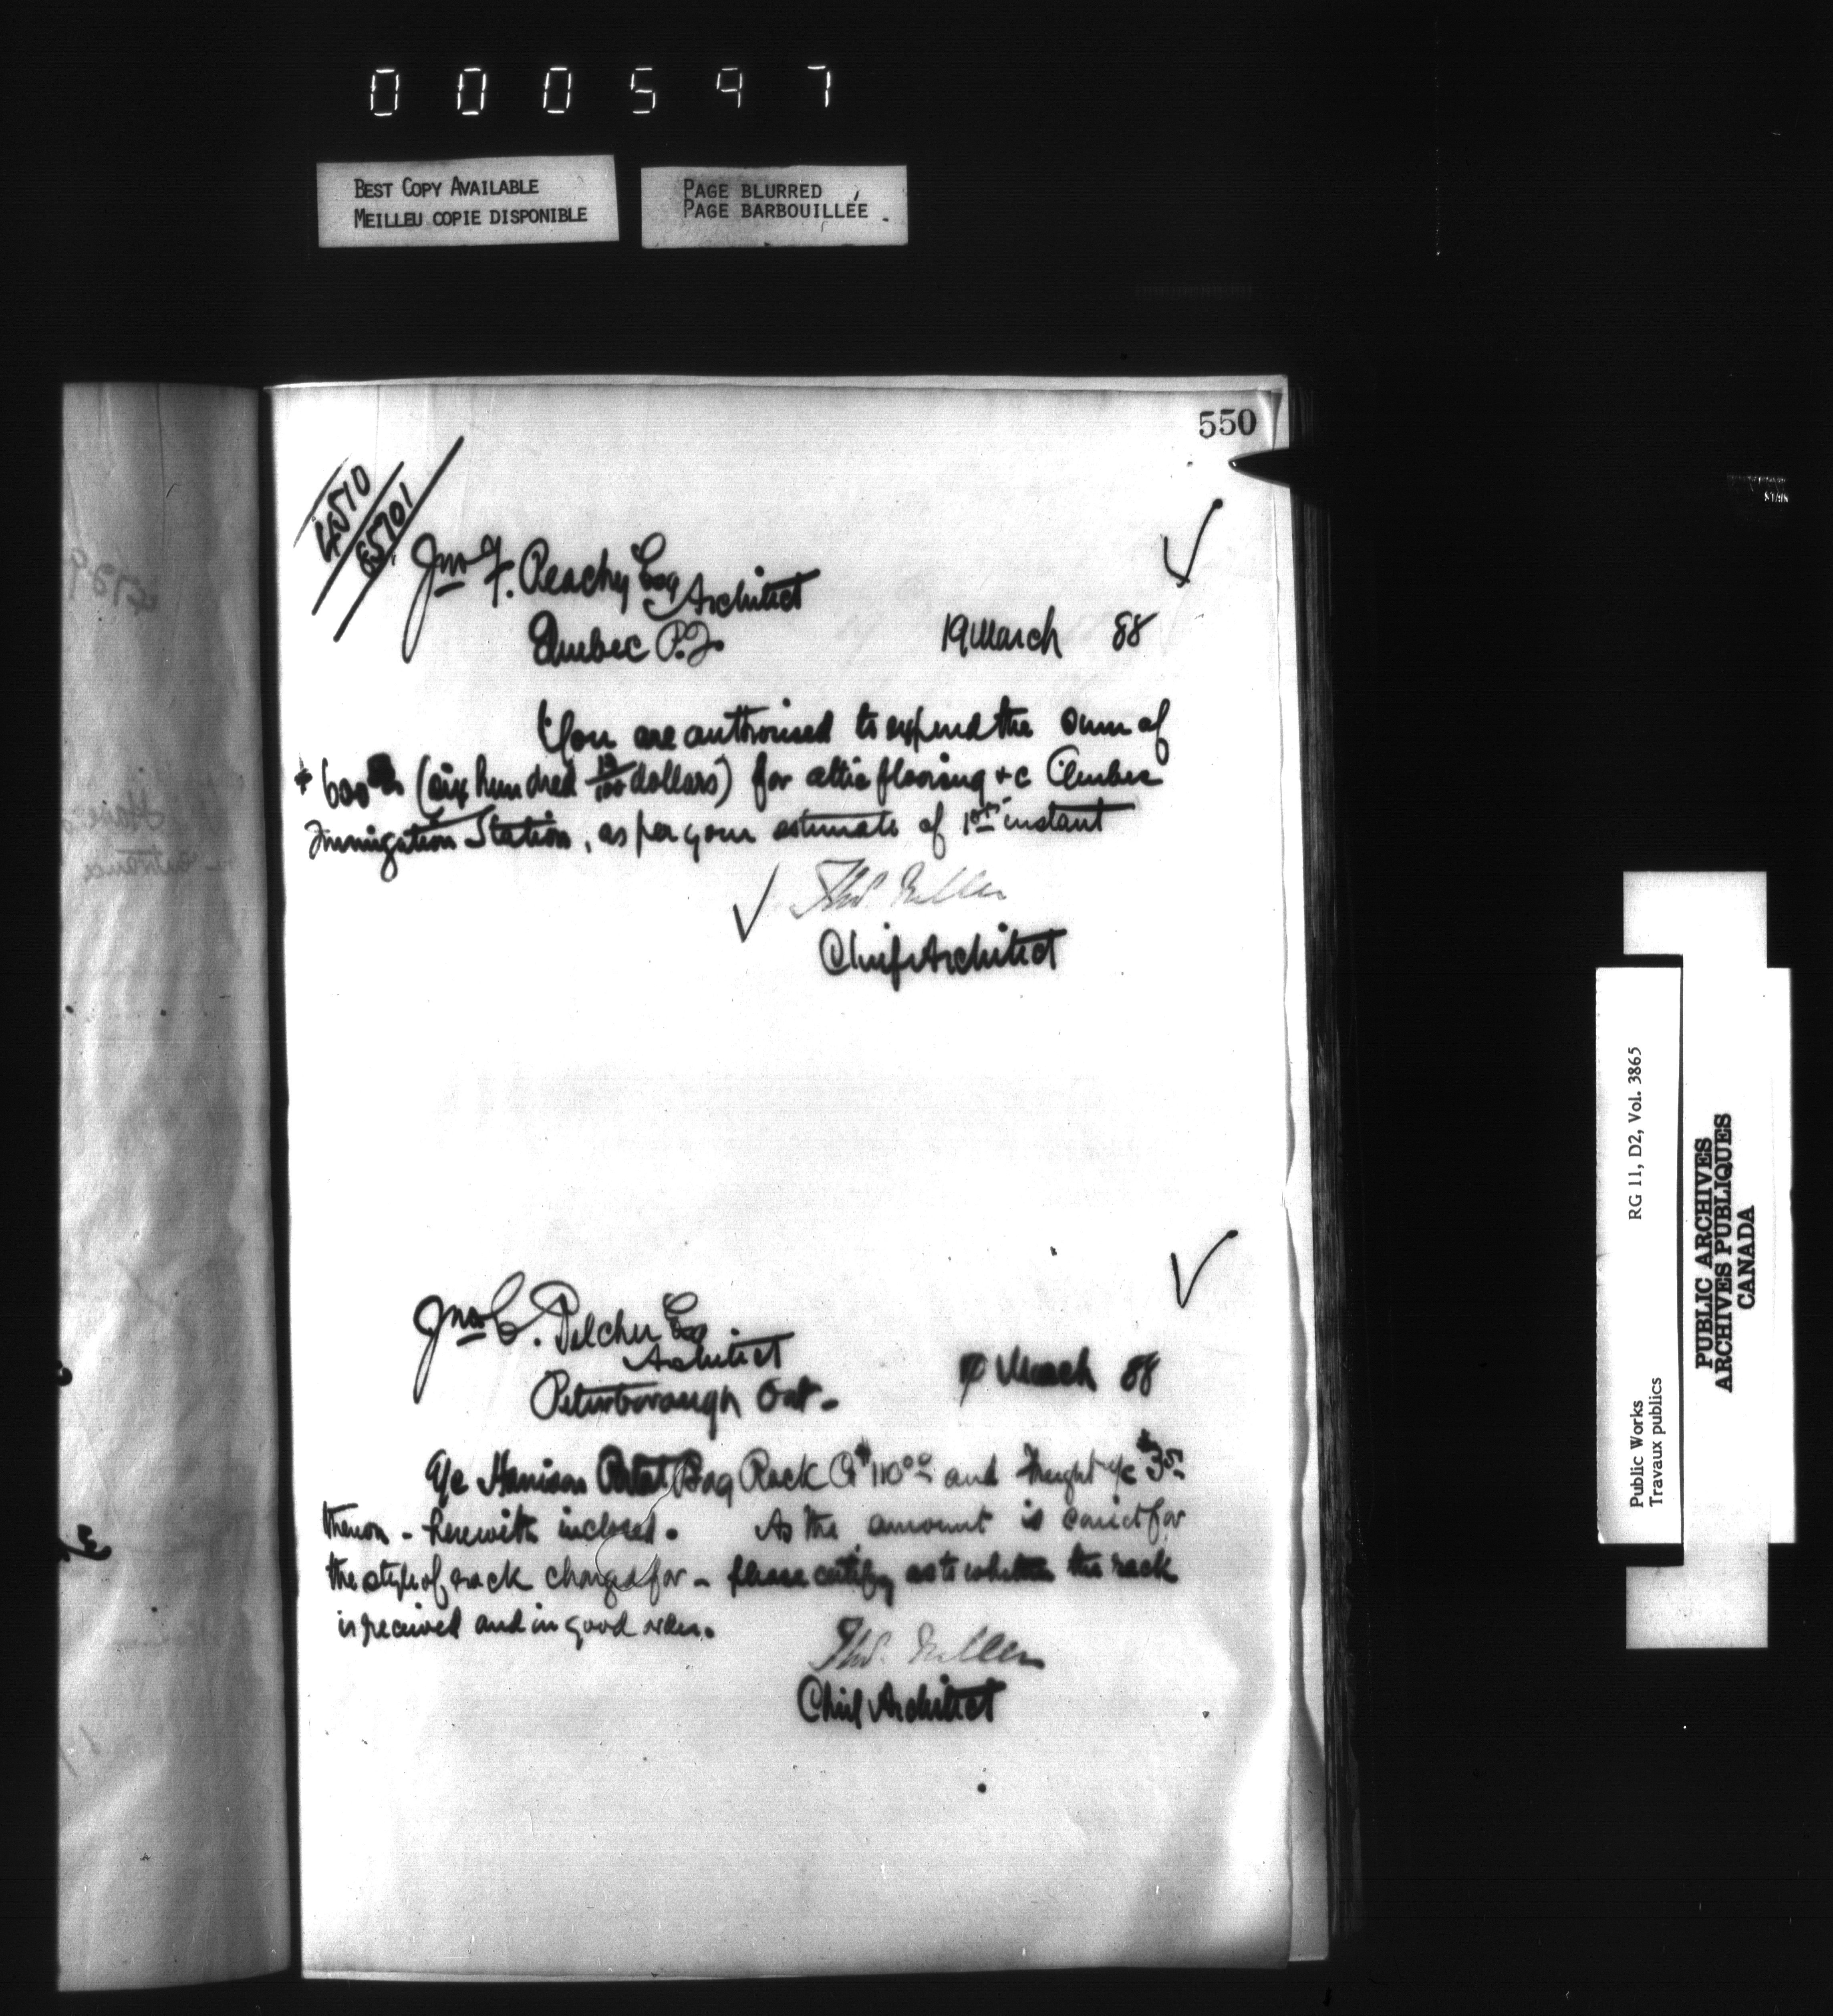 000597
BEST COPY AVAILABLE
MEILLEU COPIE DISPONIBLE
PAGE BLURRED
PAGE BARBOUILLÉE
550
85701
Jno F. Peachy Esq
Architect
Quebec P.Q.
19 March 88
You are authorised to expend the sum of
$600 (six hundred dollars) for attic flooring &c Quebec
Immigration Station, as per your estimate of 1st instant
Thos. Fuller
Chief Architect
Jno E. Belcher Esq
Architect
Peterborough Ont -
March 88
a/c Harrison Bag Rack Co $110 00 and freight a/c $3
thereon - herewith inclosed. As the amount is correct for
the style of rack charged for - please certify as to whether the rack
is received and in good order.
Thos. Fuller
Chief Architect
Public Works
Travaux publics
RG 11, D2, Vol. 3865
PUBLIC ARCHIVES
ARCHIVES PUBLIQUES
CANADA